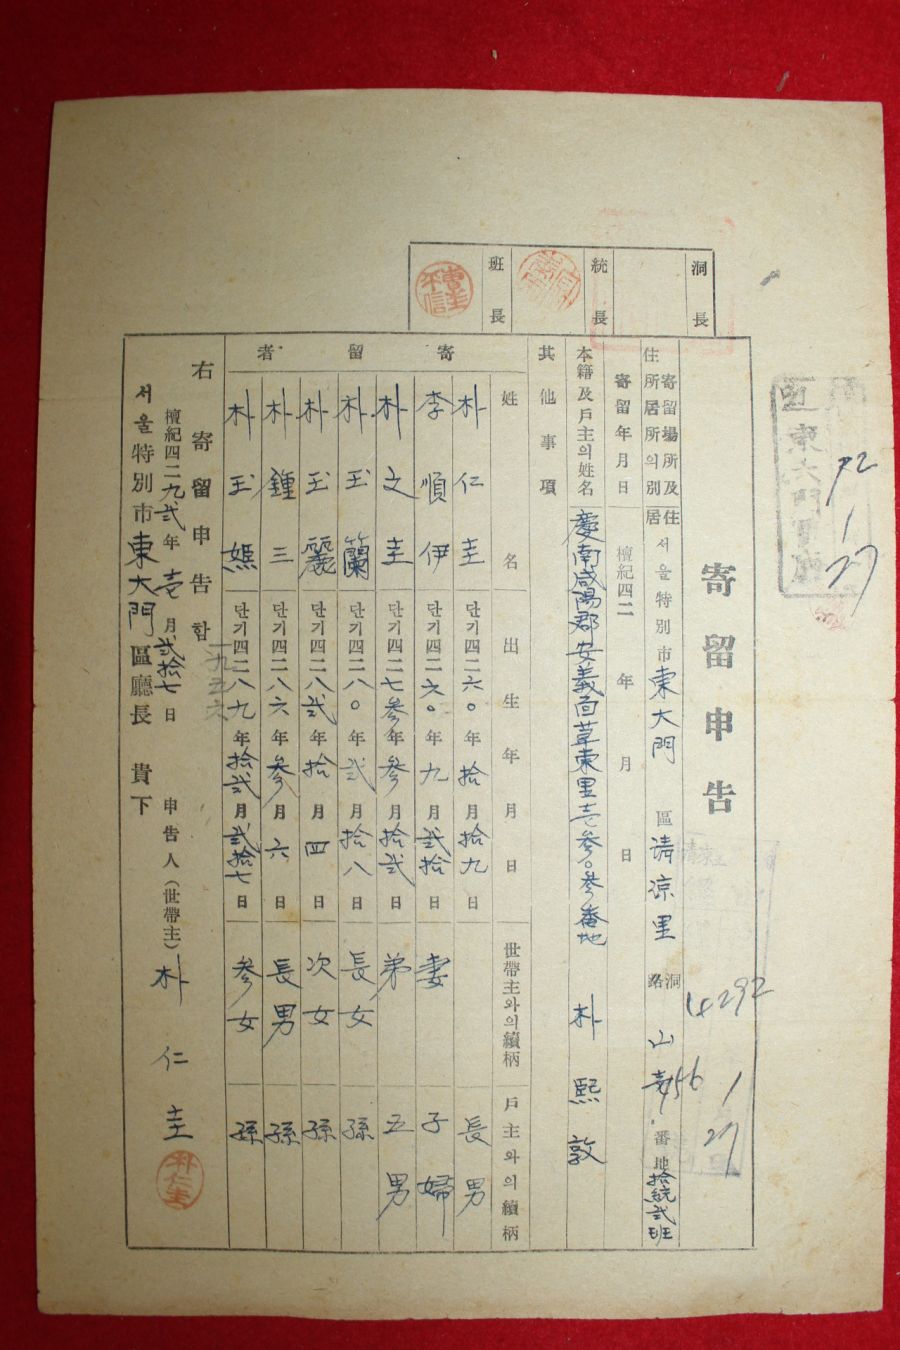 洞長
統長
班長
曺圭信
寄留申告
寄留場所及住所居所의別
住居 서울特別市 東大門 區 请凉里 洞路 山 番地 拾統弍班
寄留年月日 檀紀四二 年 月 日
本籍及戶主의姓名 慶南咸陽郡安義面草東里壱参〇参番地 朴熙敦
其他事項
寄留者
姓名 出生年月日 世帶主와의續柄 戶主와의續柄
朴仁圭 단기四二六〇年拾月拾九日 長男
李順伊 단기四二六〇年九月弍拾日 妻 子婦
朴文圭 단기四二七参年参月拾弍日 弟 五男
朴玉蘭 단기四二八〇年弍月拾八日 長女 孫
朴玉麗 단기四二八弍年拾月四日 次女 孫
朴鍾三 단기四二八六年参月六日 長男 孫
朴玉 단기四二八九年拾弍月弍拾七日 参女 孫
一九五六
右寄留申告함
檀紀四二九弍年壱月弍拾七日
申告人(世帶主) 朴仁圭
朴仁圭
서울特別市東大門區廳長 貴下
92
1
27
4292
1
27